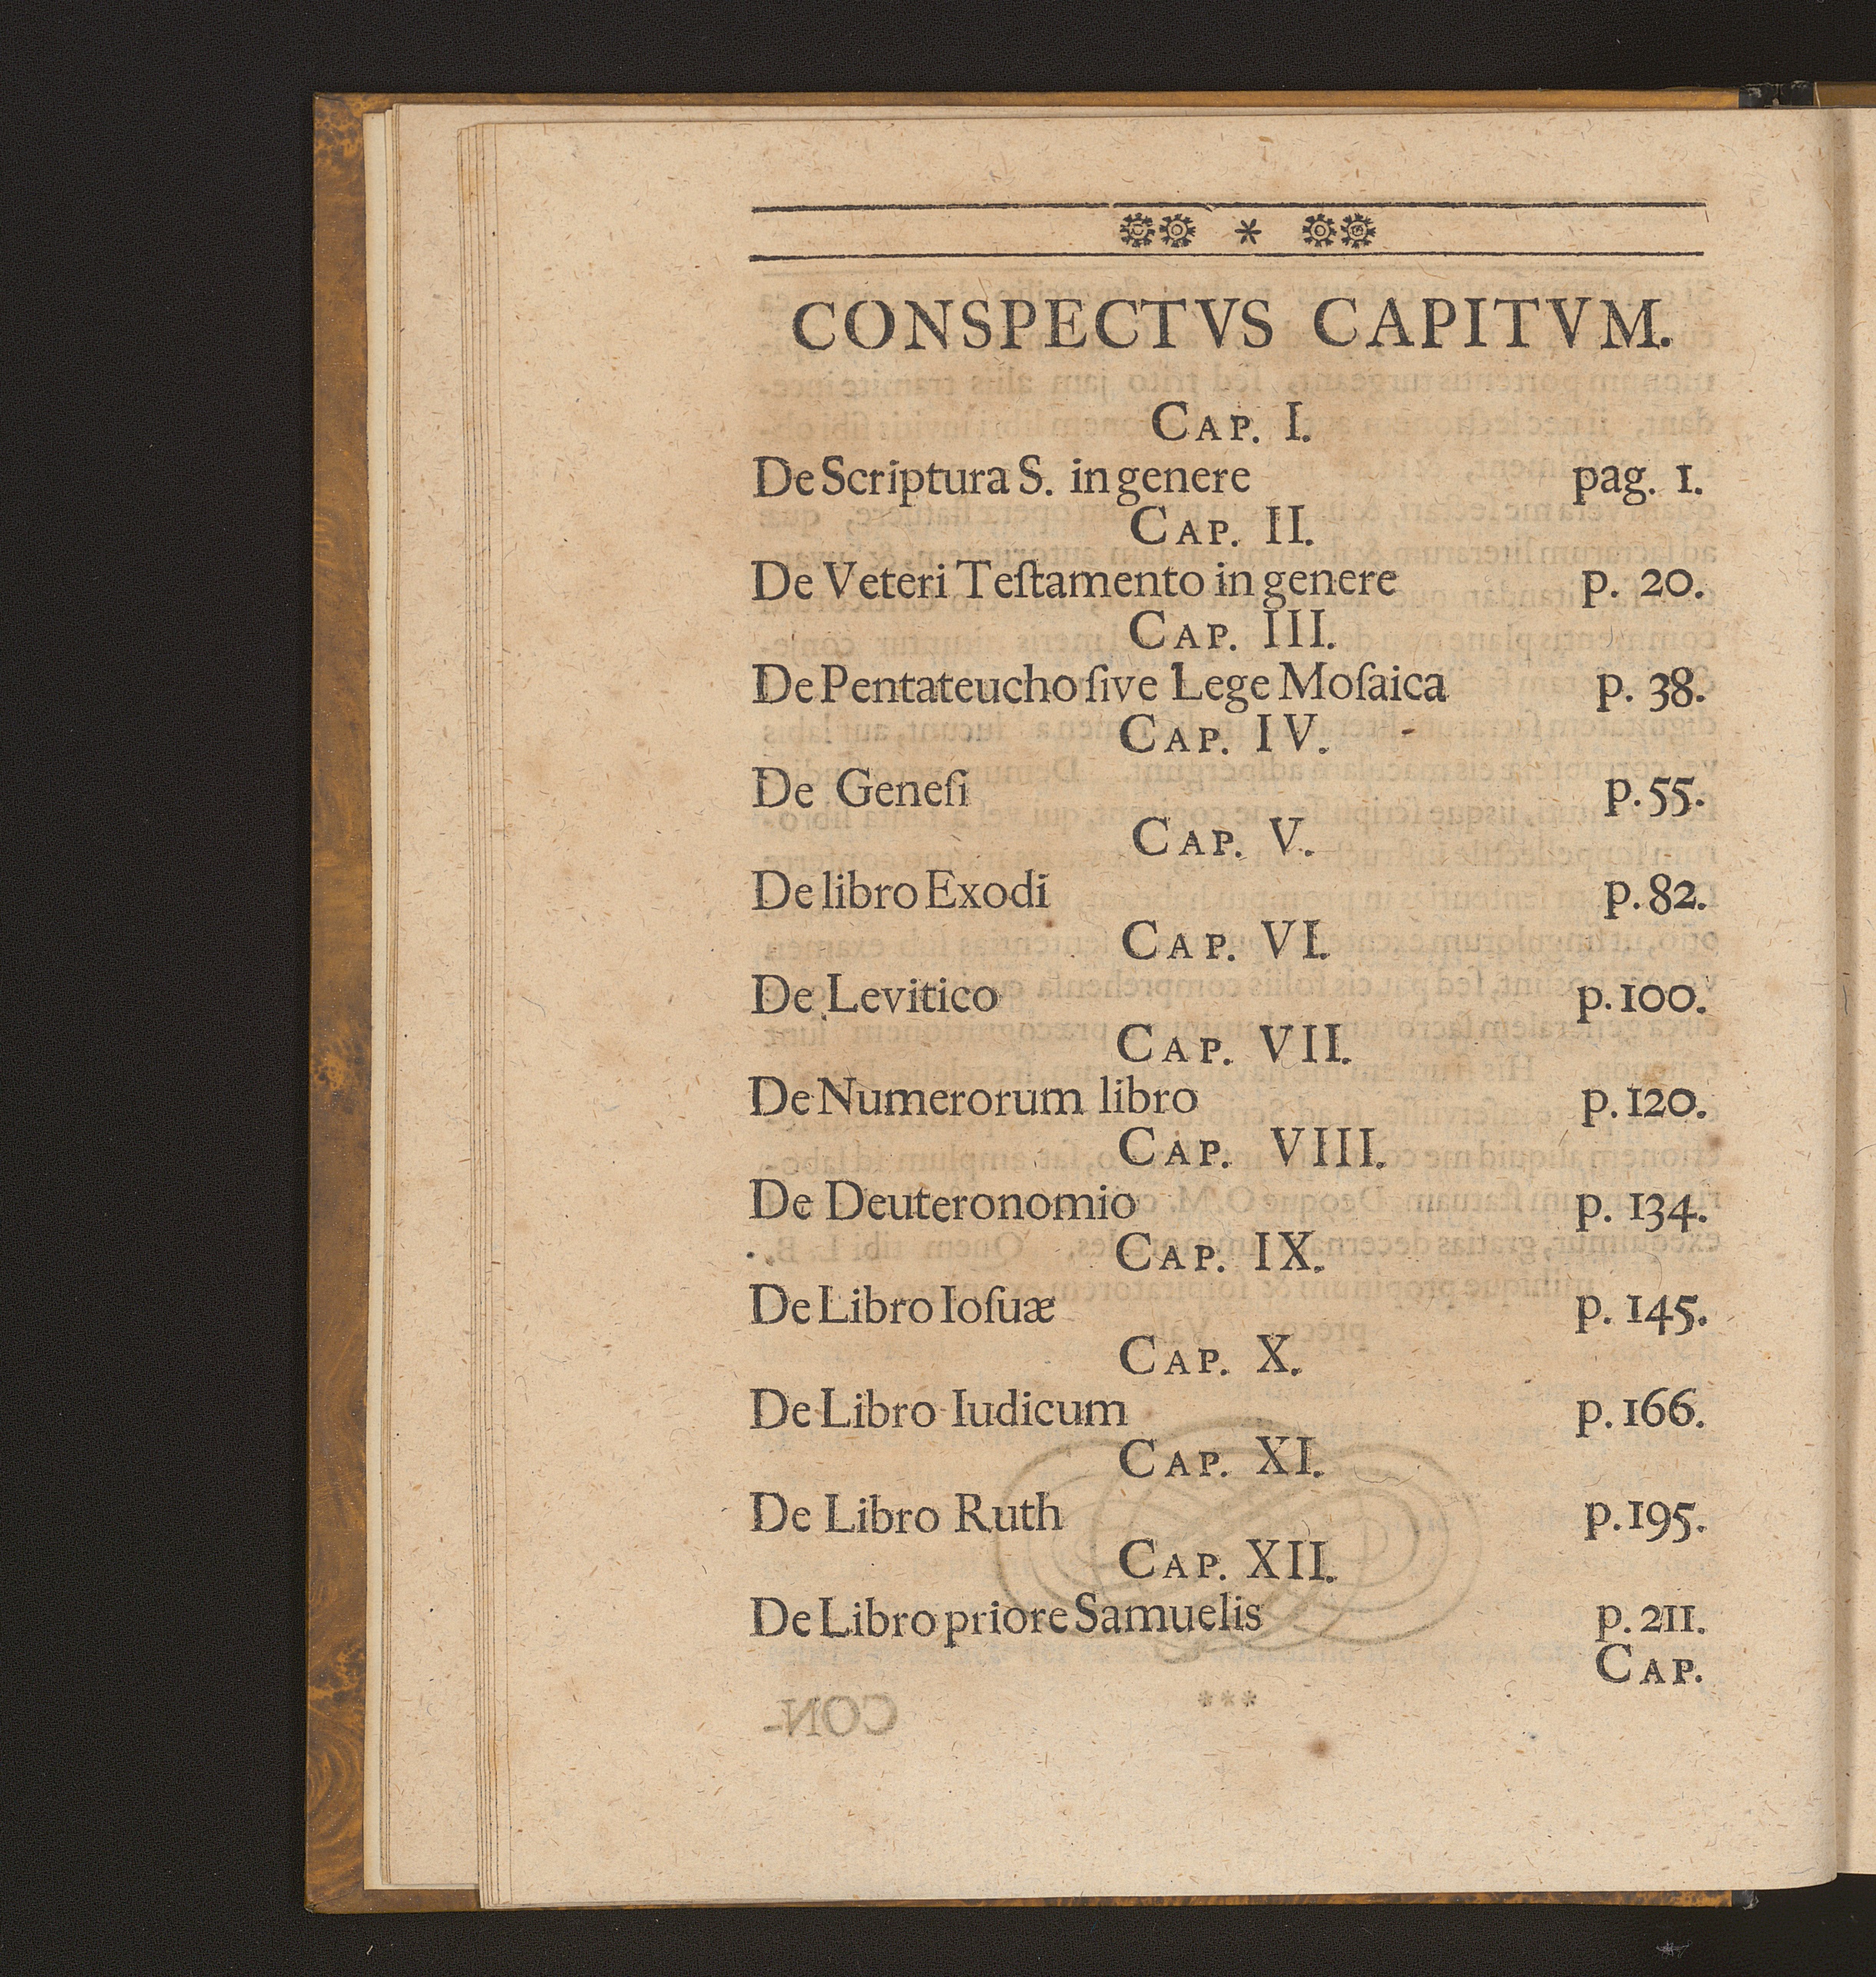 CONSPECTVS CAPITVM.
CAP. I.
De Scriptura S. in genere pag. 1.
CAP. II.
De Veteri Teſtamento in genere p. 20.
CAP. III.
De Pentateucho ſive Lege Moſaica p. 38.
CAP. IV.
De Geneſi p. 55.
CAP. V.
De libro Exodi p. 82.
CAP. VI.
De Levitico p. 100.
CAP. VII.
De Numerorum libro p. 120.
CAP. VIII.
De Deuteronomio p. 134.
CAP. IX.
De Libro Ioſuæ p. 145.
CAP. X.
De Libro Iudicum p. 166.
CAP. XI.
De Libro Ruth p. 195.
CAP. XII.
De Libro priore Samuelis p. 211.
CAP.